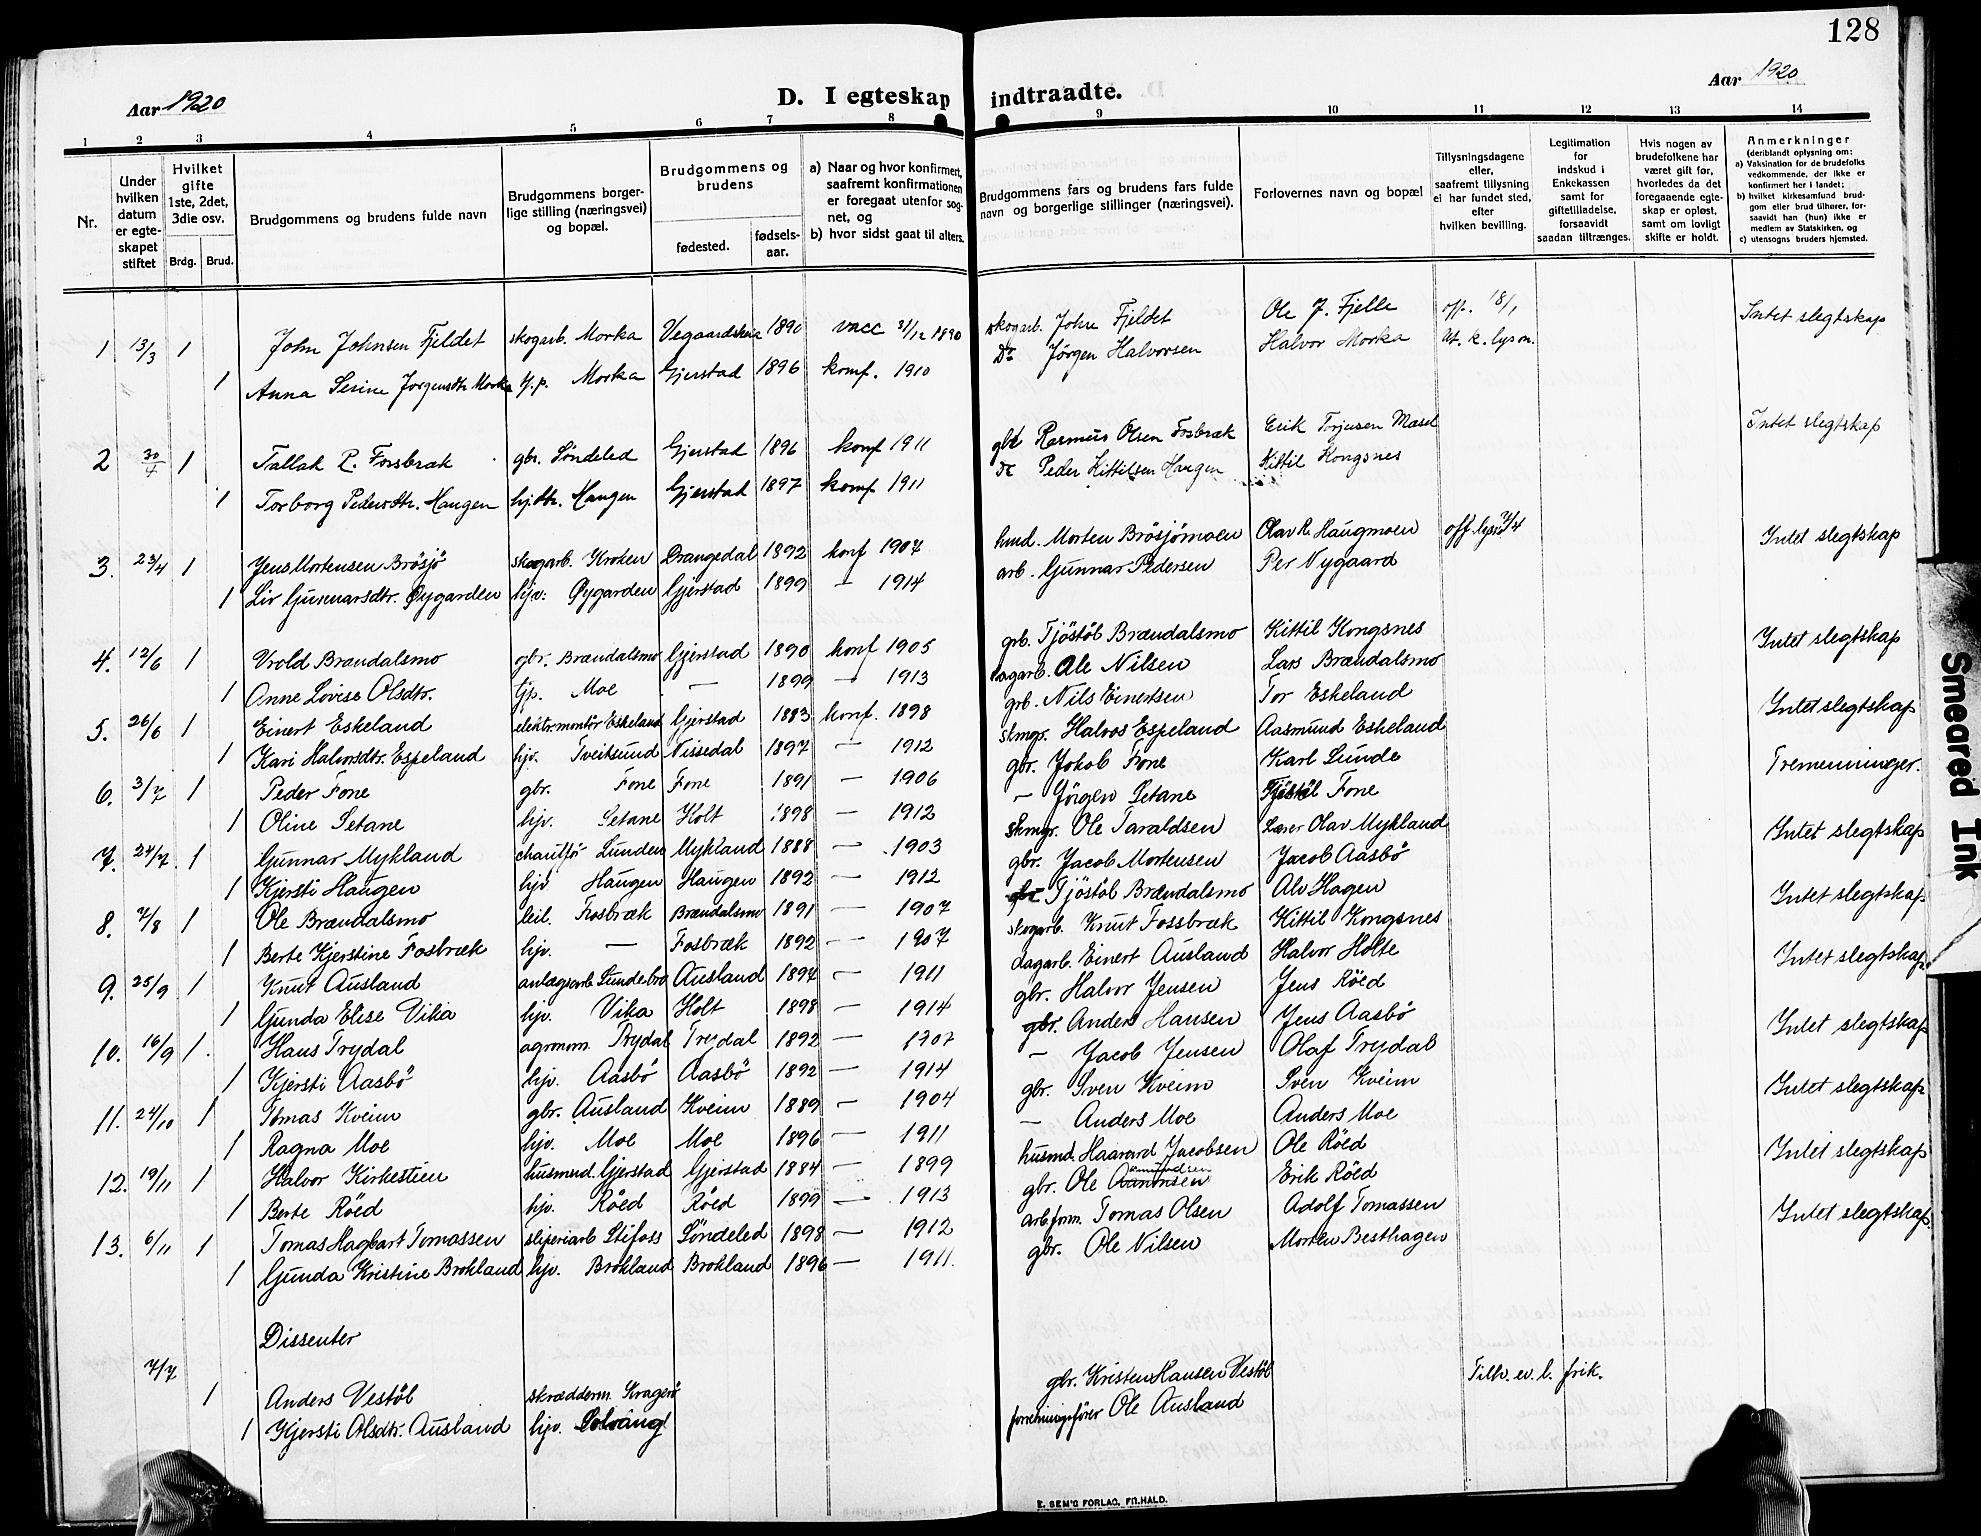 128
Aar 1920
D. I egteskap indtraadte.
Aar 1920
1 2 3 4 5 6 7 8 9 10 11 12 13 14
Nr.
Under hvilken datum er egteskapet stiftet
Hvilket gifte 1ste, 2det, 3die osv.
Brdg. Brud.
Brudgommens og brudens fulde navn
Brudgommens borgerlige stilling (næringsvei) og bopæl.
Brudgommens og brudens
fødested. fødselsaar.
a) Naar og hvor konfirmert, saafremt konfirmationen er foregaat utenfor sognet, og
b) hvor sidst gaat til alters.
Brudgommens fars og brudens fars fulde navn og borgerlige stillinger (næringsvei).
Forlovernes navn og bopæl
Tillysningsdagene eller, saafremt tillysning ei har fundet sted, efter hvilken bevilling.
Legitimation for indskud i Enkekassen samt for giftetilladelse, forsaavidt saadan tiltrænges.
Hvis nogen av brudefolkene har været gift før, hvorledes da det foregaaende egteskap er opløst, samt om lovligt skifte er holdt.
Anmerkninger
(deriblandt oplysning om:
a) Vaksination for de brudefolks vedkommende, der ikke er konfirmert her i landet;
b) hvilket kirkesamfund brudgom eller brud tilhører, forsaavidt han (hun) ikke er medlem av Statskirken, og
c) utensogns bruders hjemsted.
1 13/3 1 John Johnsen Fjeldet skogarb. Morka Vegaardsheia 1890 vacc 31/12 1890 skogarb. John Fjeldet Ole J. Fjelle off. 18/1 Intet slegtskap
1 Anna Serine Jørgensdtr Morka Morka Gjerstad 1896 komf. 1910 Do Jørgen Halvorsen Halvor Morka Ut. k. lysn.
2 30/4 1 Tallak R. Forsbræk gbr. Søndeled Gjerstad 1896 komf 1911 gbr Rasmus Olsen Fosbræk Erik Torjusen Masel Intet slegtskap
1 Torborg Pedersdtr. Haugen hj.dtr. Haugen Gjerstad 1897 komf 1911 Do Peder Kittilsen Haugen Kittil Kongsnes
3. 23/4 1 Jens Mortensen Brøsjø skogarb. Kroken Drangedal 1892 konf 1907 husd. Morten Brøsjømoen Olav R. Haugmoen off. lysn 4/4 Intet slegtskap
1 Liv Gunnarsdtr. Øygarden hjv. Øygarden Gjerstad 1899 — 1914 arb. Gunnar Pedersen Per Nygaard
4. 12/6 1 Vrold Brændalsmo gbr. Brændalsmo Gjerstad 1890 konf 1905 grb. Tjöstöl Brændalsmo Kittil Kongsnes Intet slegtskap
1 Anne Lovise Olsdtr. tjp. Moe — 1899 — 1913 dagarb. Ole Nilsen Lars Brændalsmo
5. 26/6 1 Einert Eskeland elektr.montör Eskeland Gjerstad 1883 konf. 1898 grb. Nils Einertsen Tor Eskeland Intet slegtskap
1 Kari Halvorsdtr. Espeland hjv. Tveitsund Nissedal 1897 — 1912 skmgr. Halvor Espeland Aasmund Eskeland
6. 3/7 1 Peder Fone gbr. Fone Fone 1891 — 1906 gbr. Jokob Fone Karl Lunde Tremenninger.
1 Oline Setane hjv. Setane Holt 1898 — 1912 — Jörgen Setane Tjöstöl Fone
7. 24/7. 1 Gunnar Mykland chauffø Lunden Mykland 1888 — 1903 skmgr. Ole Taraldsen Lærer Olav Mykland Intet slegtskap
1 Kjersti Haugen hjv Haugen Haugen 1892 — 1912 gbr. Jacob Mortensen Jacob Aasbö
8. 7/8 1 Ole Brændalsmo leil. Fosbræk Brændalsmo 1891 — 1907 gbr Tjöstöl Brændalsmo Alv Hagen Intet slegtskap
1 Berte Kjerstine Fosbræk hjv. — Fosbræk 1892 — 1907 skogarb. Knut Fossbræk Kittil Kongsnes
9. 25/9 1 Knut Ausland anlægsarb. Sundebro Ausland 1894 — 1911 dagarb. Einert Ausland Halvor Holte Intet slegtskap
1 Gunda Elise Vika hjv. Vika Holt 1898 — 1914 gbr. Halvor Jensen Jens Röed
10. 16/9 1. Hans Trydal agronom. Trydal Trydal 1892 — 1707 gbr. Anders Hansen Jens Aasbö Intet slegtskap
1 Kjersti Aasbö hjv. Aasbö Aasbö 1892 — 1914 — Jacob Jensen Olaf Trydal
11. 24/10 1 Tomas Kveim gbr. Ausland Kveim 1889 — 1904 gbr. Sven Kveim Sven Kveim Intet slegtskap
1 Ragna Moe hjv. Moe Moe 1896 — 1911 — Anders Moe Anders Moe
12. 19/11 1 Halvor Kirkestien husmnd. Gjerstad Gjerstad 1884 — 1899 husmd. Haavard Jacobsen Ole Röed Intet slegtskap
1 Berte Röed hjv. Röed Röed 1899 — 1913 gbr. Ole Erik Röed
13. 6/11 1 Tomas Hagbart Tomassen sliperiarb Stifoss Söndeled 1898 — 1912 arb.form. Tomas Olsen Adolf Tomassen Intet slegtskap
1 Gunda Kristine Brokland hjv. Brokland Brokland 1896 — 1911. gbr. Ole Nilsen Morten Besthagen
Dissenter
7/7 1 Anders Vestöl skrædderm. Kragerö gbr. Kristen Hansen Vestöl Tilh. ev. l. frik.
1 Kjersti Olsdtr. Ausland hjv. Solvang forretningsfører Ole Ausland
E. SEM'S FORLAG, FR.HALD.
Smeared Ink